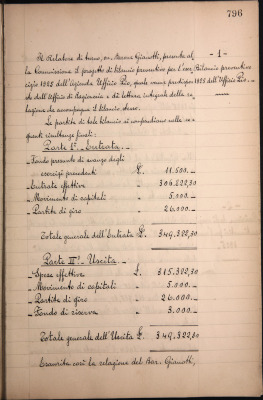 796
Il Relatore di turno, on. Barone Gianotti, presenta al-
la Commissione il progetto di bilancio preventivo per l'eser-
cizio 1925 dell'Azienda Ufficio Pio, quale venne predisposto
dall'Ufficio di Ragioneria e dà lettura integrale della re-
lazione che accompagna il bilancio stesso.
- 1 -
Bilancio preventivo
1925 dell'Ufficio Pio. -
Le partite di tale bilancio si compendiano nelle se-
guenti risultanze finali:
Parte Iª - Entrata. -
- Fondo presunto di avanzo degli
esercizi precedenti £. 11.500. -
- Entrate effettive " 306.822,30
- Movimento di capitali " 5.000. -
- Partite di giro " 26.000. -
Totale generale dell'Entrata £. 349.322,30
Parte IIª - Uscita. -
- Spese effettive £. 315.322,30
- Movimento di capitali " 5.000. -
- Partite di giro " 26.000. -
- Fondo di riserva " 3.000. -
Totale generale dell'Uscita £. 349.322,30
Esaurita così la relazione del Bar. Gianotti,